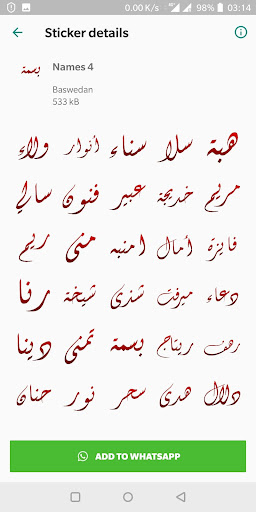 0.00 K/s 98% 03:14
Sticker details
بسمة
Names 4
Baswedan
533 kB
هبة سلا سناء أنوار ولاء
مريم خديجة عبير فنون سالي
فايزة أمال امنيه منى ريم
دعاء ميرفت شذى شيخة رنا
رهف ريتاج بسمة تمنى دينا
دلال هدى سحر نور حنان
ADD TO WHATSAPP